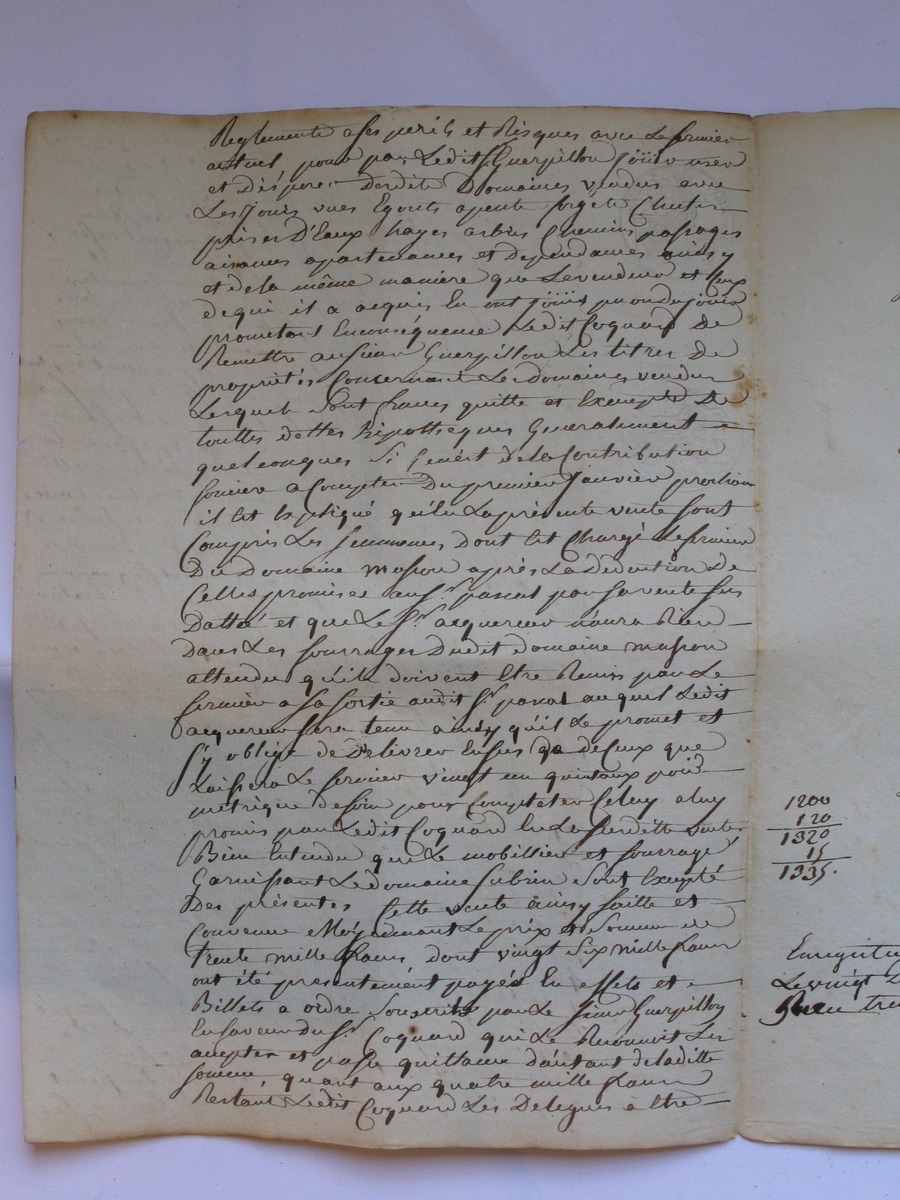 Reglemente a ses perils et Risques avec Le fermier
actuel pour par Ledit Sr Guerpillon jöüir user
et Disposer desdits Domaines vendus avec
Les jours vues Egouts apente Chutes
prises D'Eaux hayes arbres Chemins passages
aisances apartenances et dependances ainsy
et de la même maniere que Le vendeur et Ceux
de qui il a acquis En ont jöüis pu ou du jouir
prometant En conséquence Ledit Coquard De
Remettre au sieur Guerpillon Les titres De
propriétés Concernant Les domaines vendus
Lesquels Sont francs quitte et Exempts De
touttes dettes hipotheques Generalement
quelconques Si Ce n'est de la Contribution
fonciere a Compter Du premier Janvier prochain
il Est Expliqué qu'En La présente vente sont
Compris Les semences Dont Est Chargé Le fermier
Du Domaine masson après La Deduction De
Celles promises au Sr pascal par sa vente sus
Datté et que Le Sr acquereur n'aura Rien
Dans Les fourrages Dudit domaine masson
attendu qu'ils doivent Etre Remis par Le
fermier a sa sortie audit Sr pascal auquel Ledit
acquereur sera tenu ainsy qu'il Le promet et
s'y oblige de Delivrer de Ceux que
Laissera Le fermier vingt un quintaux poid
métrique de foin pour Completter Celuy a luy
promis par Ledit Coquard En La susditte vente
Bien Entendu que Le mobillier et fourrage
Garnissant Le domaine Subrin Sont Excepté
Des présentes Cette vente ainsy faitte et
Convenue Moyennant Le prix et Somme de
trente mille francs dont vingt Six mille francs
ont été presentement payés En effets et
Billets a ordre Souscrits par Le sieur Guerpillon
En faveur du Sr Coquard qui Le Reconnoit Les
accepter et passe quittance d'autant de laditte
somme, quant aux quatre mille francs
Restant Ledit Coquard Les Delegues a Etre
1200
120
1320
15
1335.
Enregistré
Le vingt